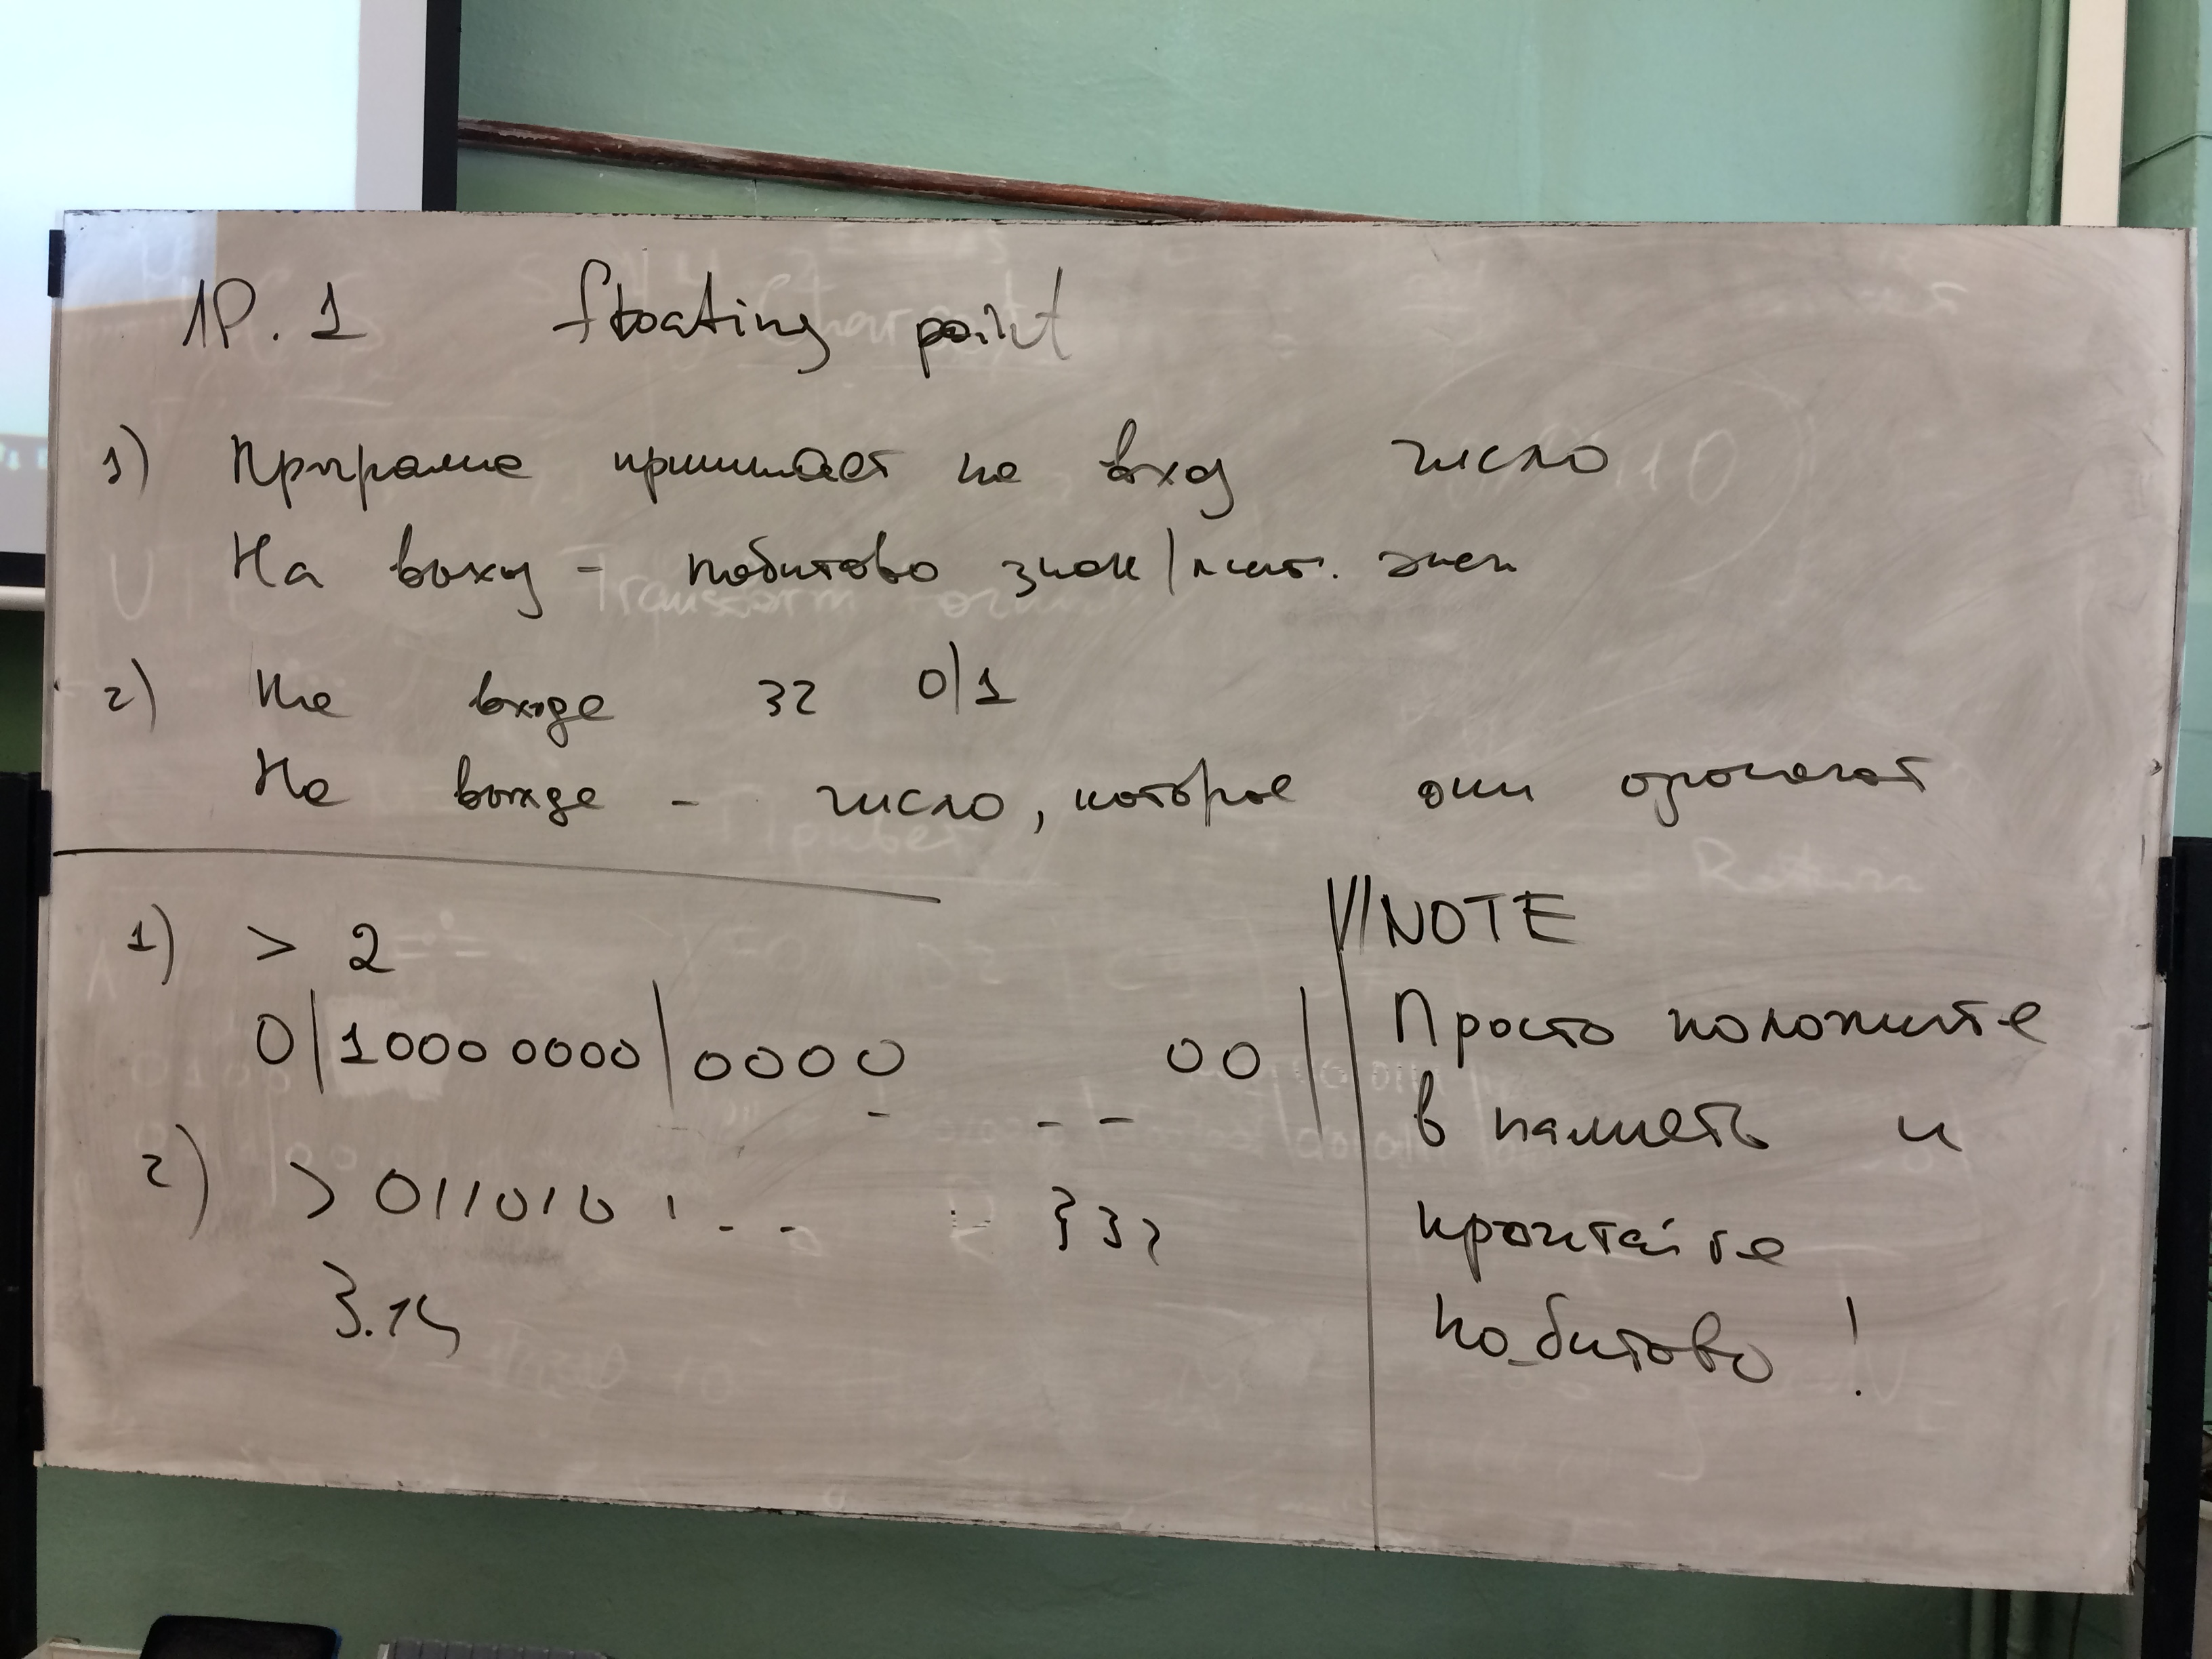 ЛР. 1 floating point
1) Програма принимает на вход число
На выход - побитово знак|мант. эксп
2) На входе 32 0|1
На выходе - число, которое они
1) > 2
0|10000000|0000 00|
2) > 0110101 . . . } 32
3.14
//NOTE
Просто положите
в память и
прочитайте
по_битово!